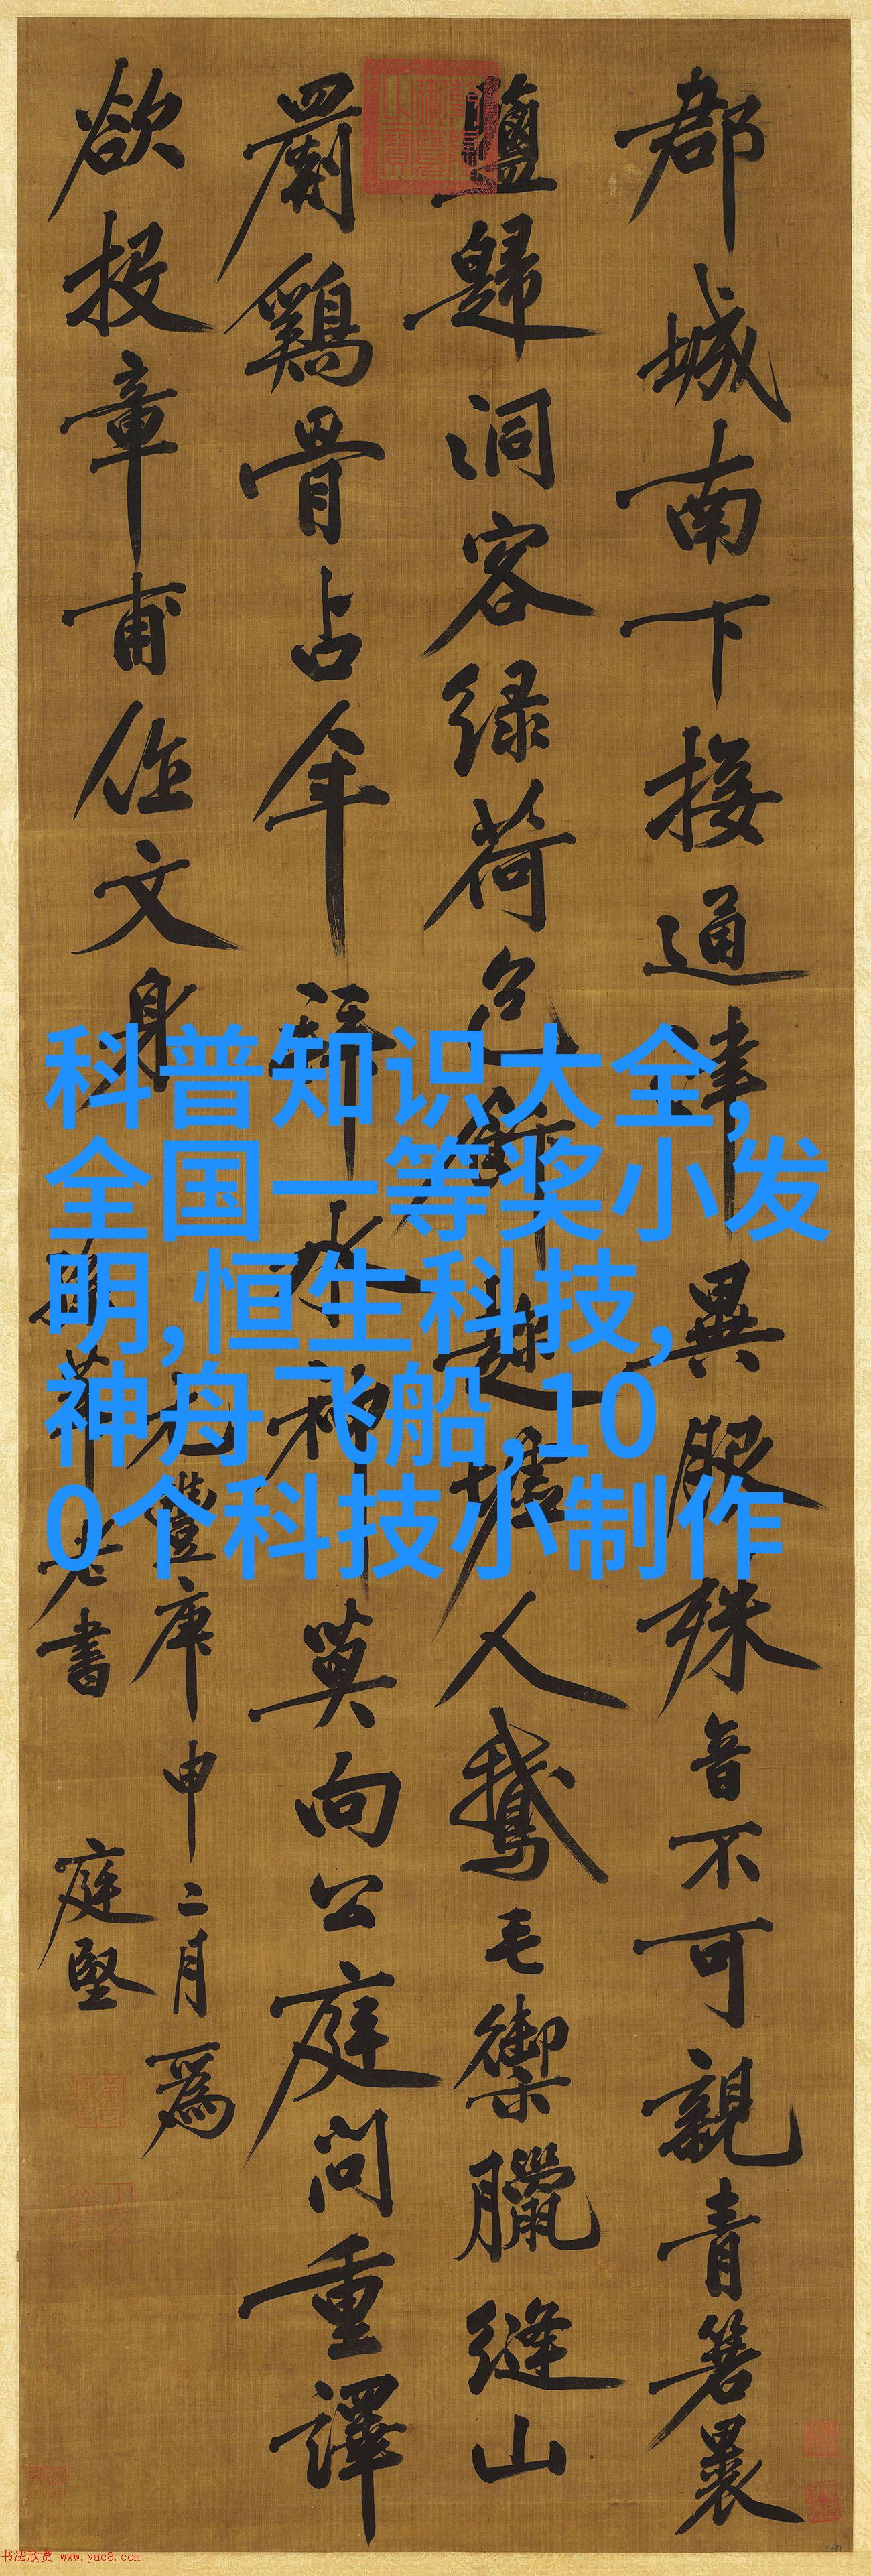 郡城南下接通津異服殊音不可親青箬裹
鹽歸洞客緑荷包飯趁墟人鵝毛禦臘縫山
罽鷄骨占年拜水神莫向公庭問重譯
欲投章甫作文身
元豐庚申二月爲
老書 庭堅
科普知识大全,
全国一等奖小发
明,恒生科技,
神舟飞船,10
0个科技小制作
书法欣赏 www.yac8.com